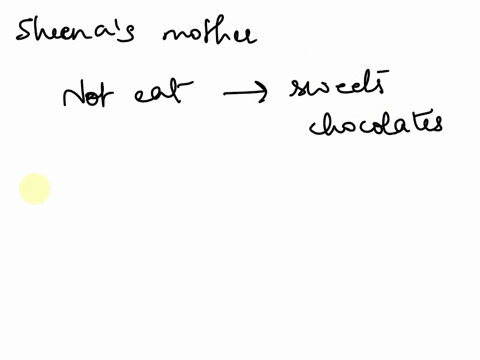 Sheena's mother
Not eat → sweets
chocolates